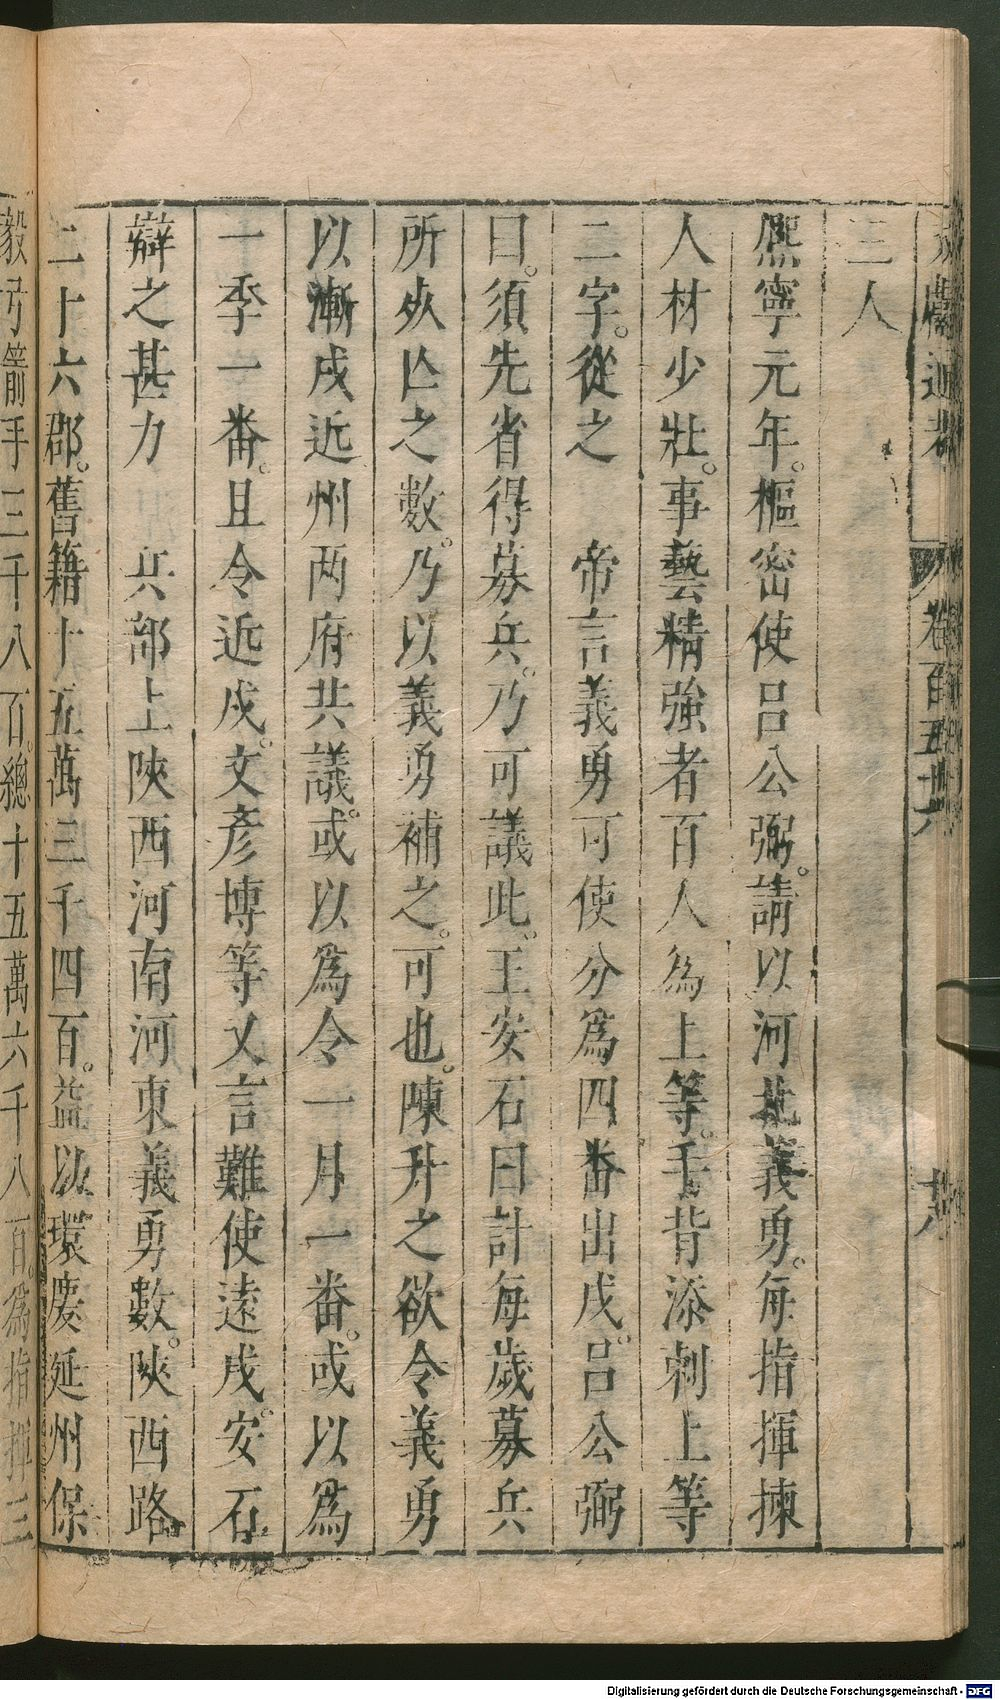 卷百五十六
三人
熈寧元年。樞密使吕公弼。請以河北義勇。每指揮揀
人材少壯。事藝精強者百人為上等。手背添刺上等
二字。從之　帝言義勇可使分為四番出戍。吕公弼
曰。須先省得募兵。乃可議此。王安石曰計每歲募兵
所死亡之數。乃以義勇補之。可也。陳升之欲令義勇
以漸戍近州两府共議。或以為令一月一番。或以為
一季一番。且令近戍。文彦博等又言難使遠戍。安石
辯之甚力　兵部上陝西河南河東義勇數。陝西路
二十六郡。舊籍十五萬三千四百。益以環慶延州保
毅弓箭手三千八百。總十五萬六千八百。為指揮三
Digitalisierung gefördert durch die Deutsche Forschungsgemeinschaft - DFG